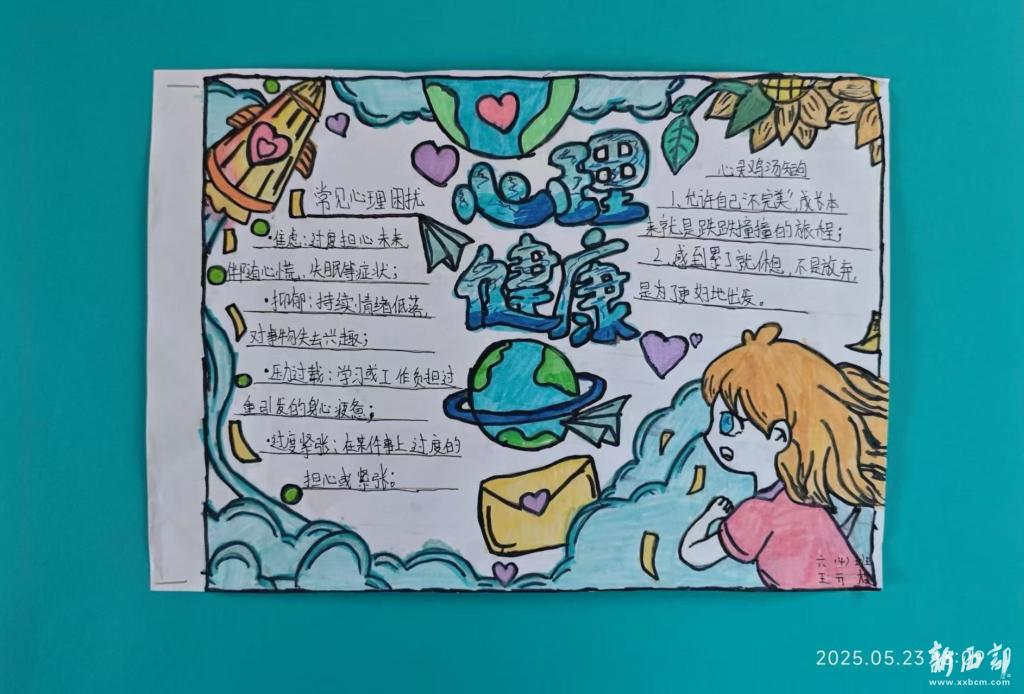 心理
健康
常见心理困扰
·焦虑:过度担心未来,
伴随心慌、失眠等症状;
·抑郁:持续情绪低落,
对事物失去兴趣;
·压力过载:学习或工作负担过
重引发的身心疲惫;
·过度紧张:在某件事上过度的
担心或紧张。
心灵鸡汤知多
1、允许自己“不完美”,成长本
来就是跌跌撞撞的旅程;
2、感到累了就休息,不是放弃,
是为了更好地出发。
六(4)班
王亓
2025.05.23
新西部
www.xxbcm.com